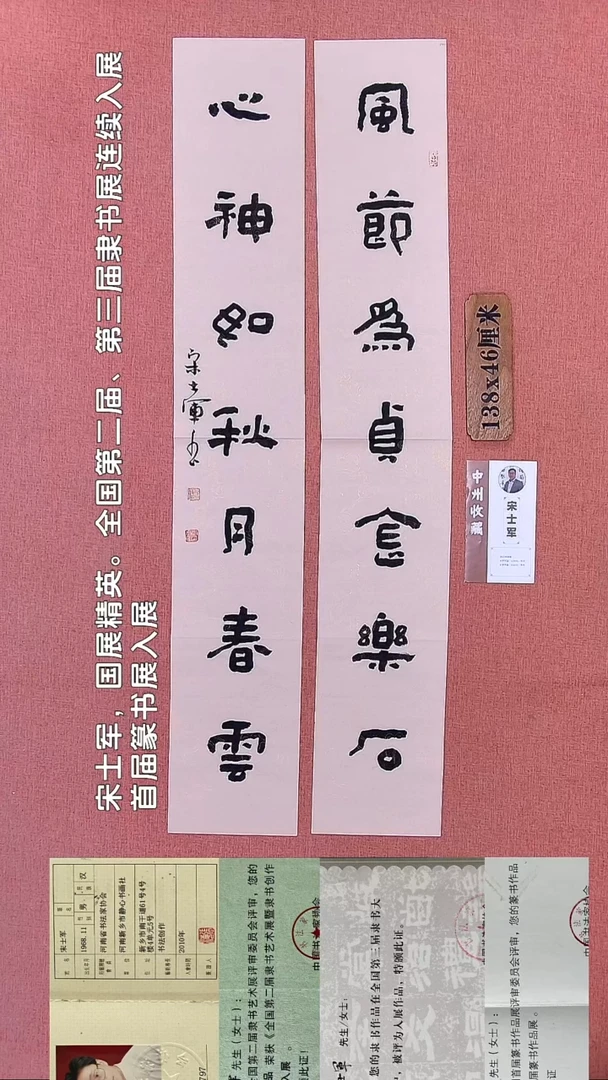 宋士军，国展精英。全国第二届、第三届隶书展连续入展
首届篆书展入展
風節為貞金樂石
心神如秋月春雲
宋士軍书
138x46厘米
宋士军
1968.11
男
汉
河南省书法家协会
河南新乡市静心书画社
书法创作
2010年
先生（女士）：
全国第二届隶书艺术展评审委员会评审，您的
品 荣获《全国第二届隶书艺术展暨隶书创作
入展。
此证！
先生/女士：
您的隶书作品在全国第三届隶书大
中，被评为入展作品，特颁此证。
先生（女士）：
首届篆书作品展评审委员会评审，您的篆书作品
届篆书作品展。